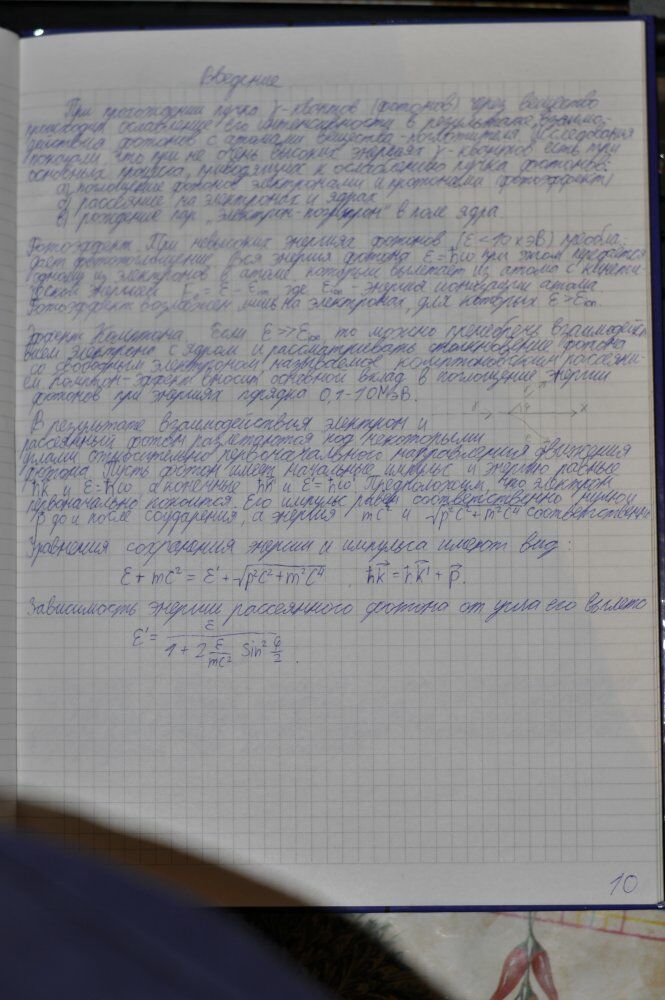 Введение
При прохождении пучка γ-квантов (фотонов) через вещество
происходит ослабление его интенсивности в результате взаимо-
действия фотонов с атомами вещества-поглотителя. Исследования
показали, что при не очень высоких энергиях γ-квантов есть три
основных процесса, приводящих к ослаблению пучка фотонов:
а) поглощение фотонов электронами и протонами (фотоэффект)
б) рассеяние на электронах и ядрах
в) рождение пар „электрон-позитрон" в поле ядра.
Фотоэффект. При невысоких энергиях фотонов (ε<10кэВ) преобла-
дает фотопоглощение. Вся энергия фотона ε=ħω при этом передаётся
одному из электронов в атоме, который вылетает из атома с кинети-
ческой энергией = ε - где - энергия ионизации атома.
Фотоэффект возможен лишь на электронах, для которых ε>
Эффект Комптона. Если ε>> то можно пренебречь взаимодейст-
вием электрона с ядром и рассматривать столкновение фотона
со свободным электроном, называемое комптоновским рассеяни-
ем. Комптон-эффект вносит основной вклад в поглощение энергии
фотонов при энергиях порядка 0,1-10МэВ.
x
В результате взаимодействия электрон и
рассеянный фотон разлетаются под некоторыми
углами относительно первоначального направления движения
фотона. Пусть фотон имеет начальные импульс и энергию равные
ħk и ε=ħω, а конечные ħk' и ε'=ħω'. Предположим, что электрон
первоначально покоится. Его импульс равен соответственно нулю и
p до и после соударения, а энергия mc² и √p²c²+m²c⁴ соответственно
Уравнения сохранения энергии и импульса имеют вид:
ε+mc² = ε' + √p²c²+m²c⁴ , ħk⃗ = ħk⃗' + p⃗.
Зависимость энергии рассеянного фотона от угла его вылета
ε' = ε / (1 + 2 ε/mc² sin² φ/2) .
10